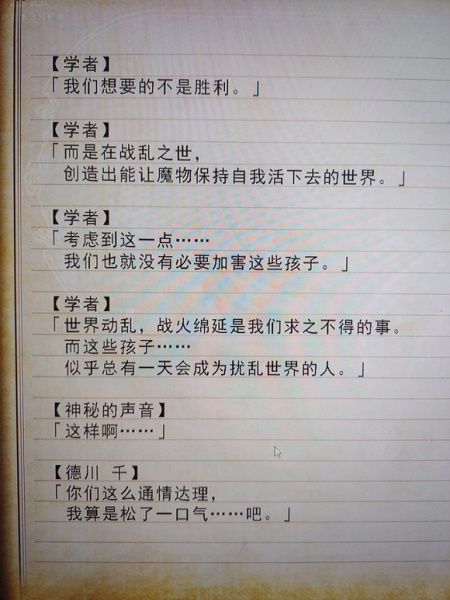 【学者】
「我们想要的不是胜利。」
【学者】
「而是在战乱之世，
创造出能让魔物保持自我活下去的世界。」
【学者】
「考虑到这一点……
我们也就没有必要加害这些孩子。」
【学者】
「世界动乱，战火绵延是我们求之不得的事。
而这些孩子……
似乎总有一天会成为扰乱世界的人。」
【神秘的声音】
「这样啊……」
【德川 千】
「你们这么通情达理，
我算是松了一口气……吧。」